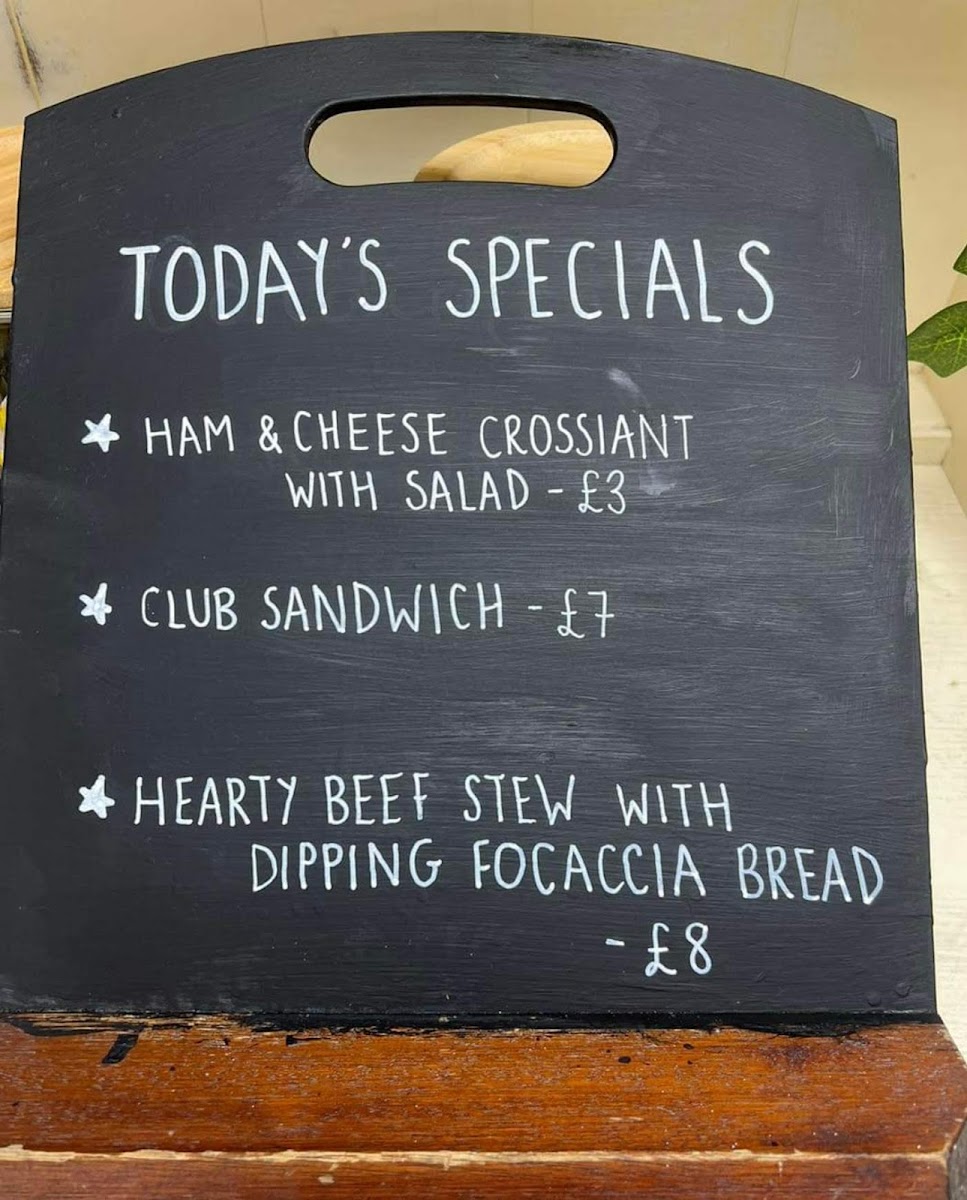 TODAY'S SPECIALS
HAM & CHEESE CROSSIANT
WITH SALAD - £3
CLUB SANDWICH - £7
HEARTY BEEF STEW WITH
DIPPING FOCACCIA BREAD
- £8